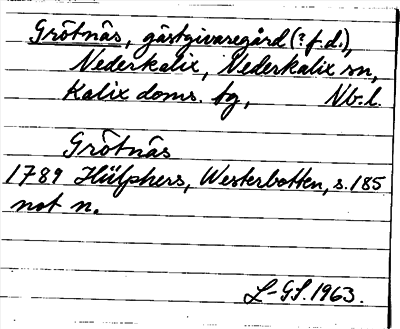 Grötnäs, gästgivaregård (? f.d.),
Nederkalix, Nederkalix sn,
Kalix doms. tg, Nb. l.
Grötnäs
1789 Hülphers, Westerbotten, s. 185
not n.
L-GS. 1963.